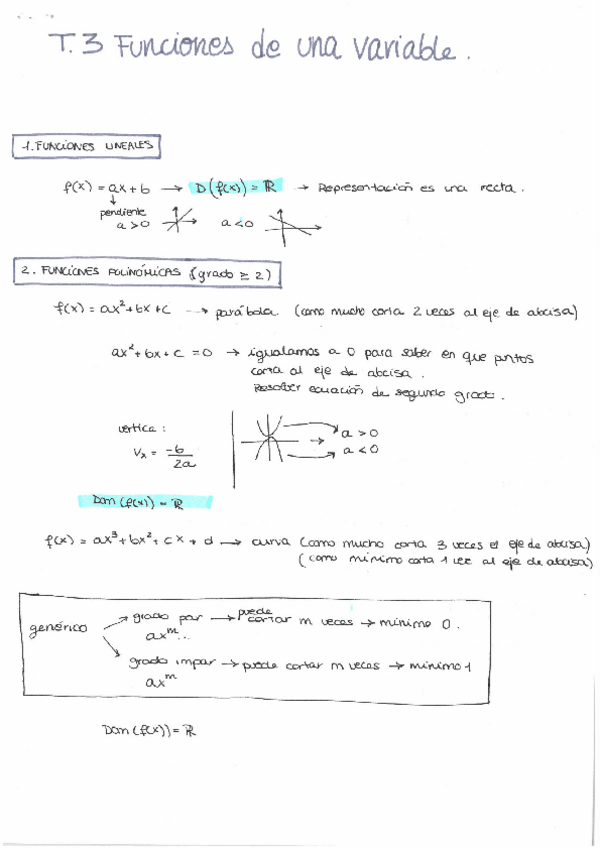 T.3 Funciones de una variable.
1. FUNCIONES LINEALES
f(x) = ax + b → D(f(x)) = ℝ → Representación es una recta.
↓
pendiente
a > 0 a < 0
2. FUNCIONES POLINÓMICAS (grado ≥ 2)
f(x) = ax² + bx + c → parábola. (como mucho corta 2 veces al eje de abcisa)
ax² + bx + c = 0 → igualamos a 0 para saber en que puntos
corta al eje de abcisa.
Resolver ecuación de segundo grado.
vertice:
Vx = -b/2a
→ a > 0
→ a < 0
Dom (f(x)) = ℝ
f(x) = ax³ + bx² + cx + d → curva (como mucho corta 3 veces el eje de abcisa)
(como mínimo corta 1 vez al eje de abcisa)
genérico
grado par → puede cortar m veces → mínimo 0.
axᵐ...
grado impar → puede cortar m veces → mínimo 1
axᵐ
Dom (f(x)) = ℝ